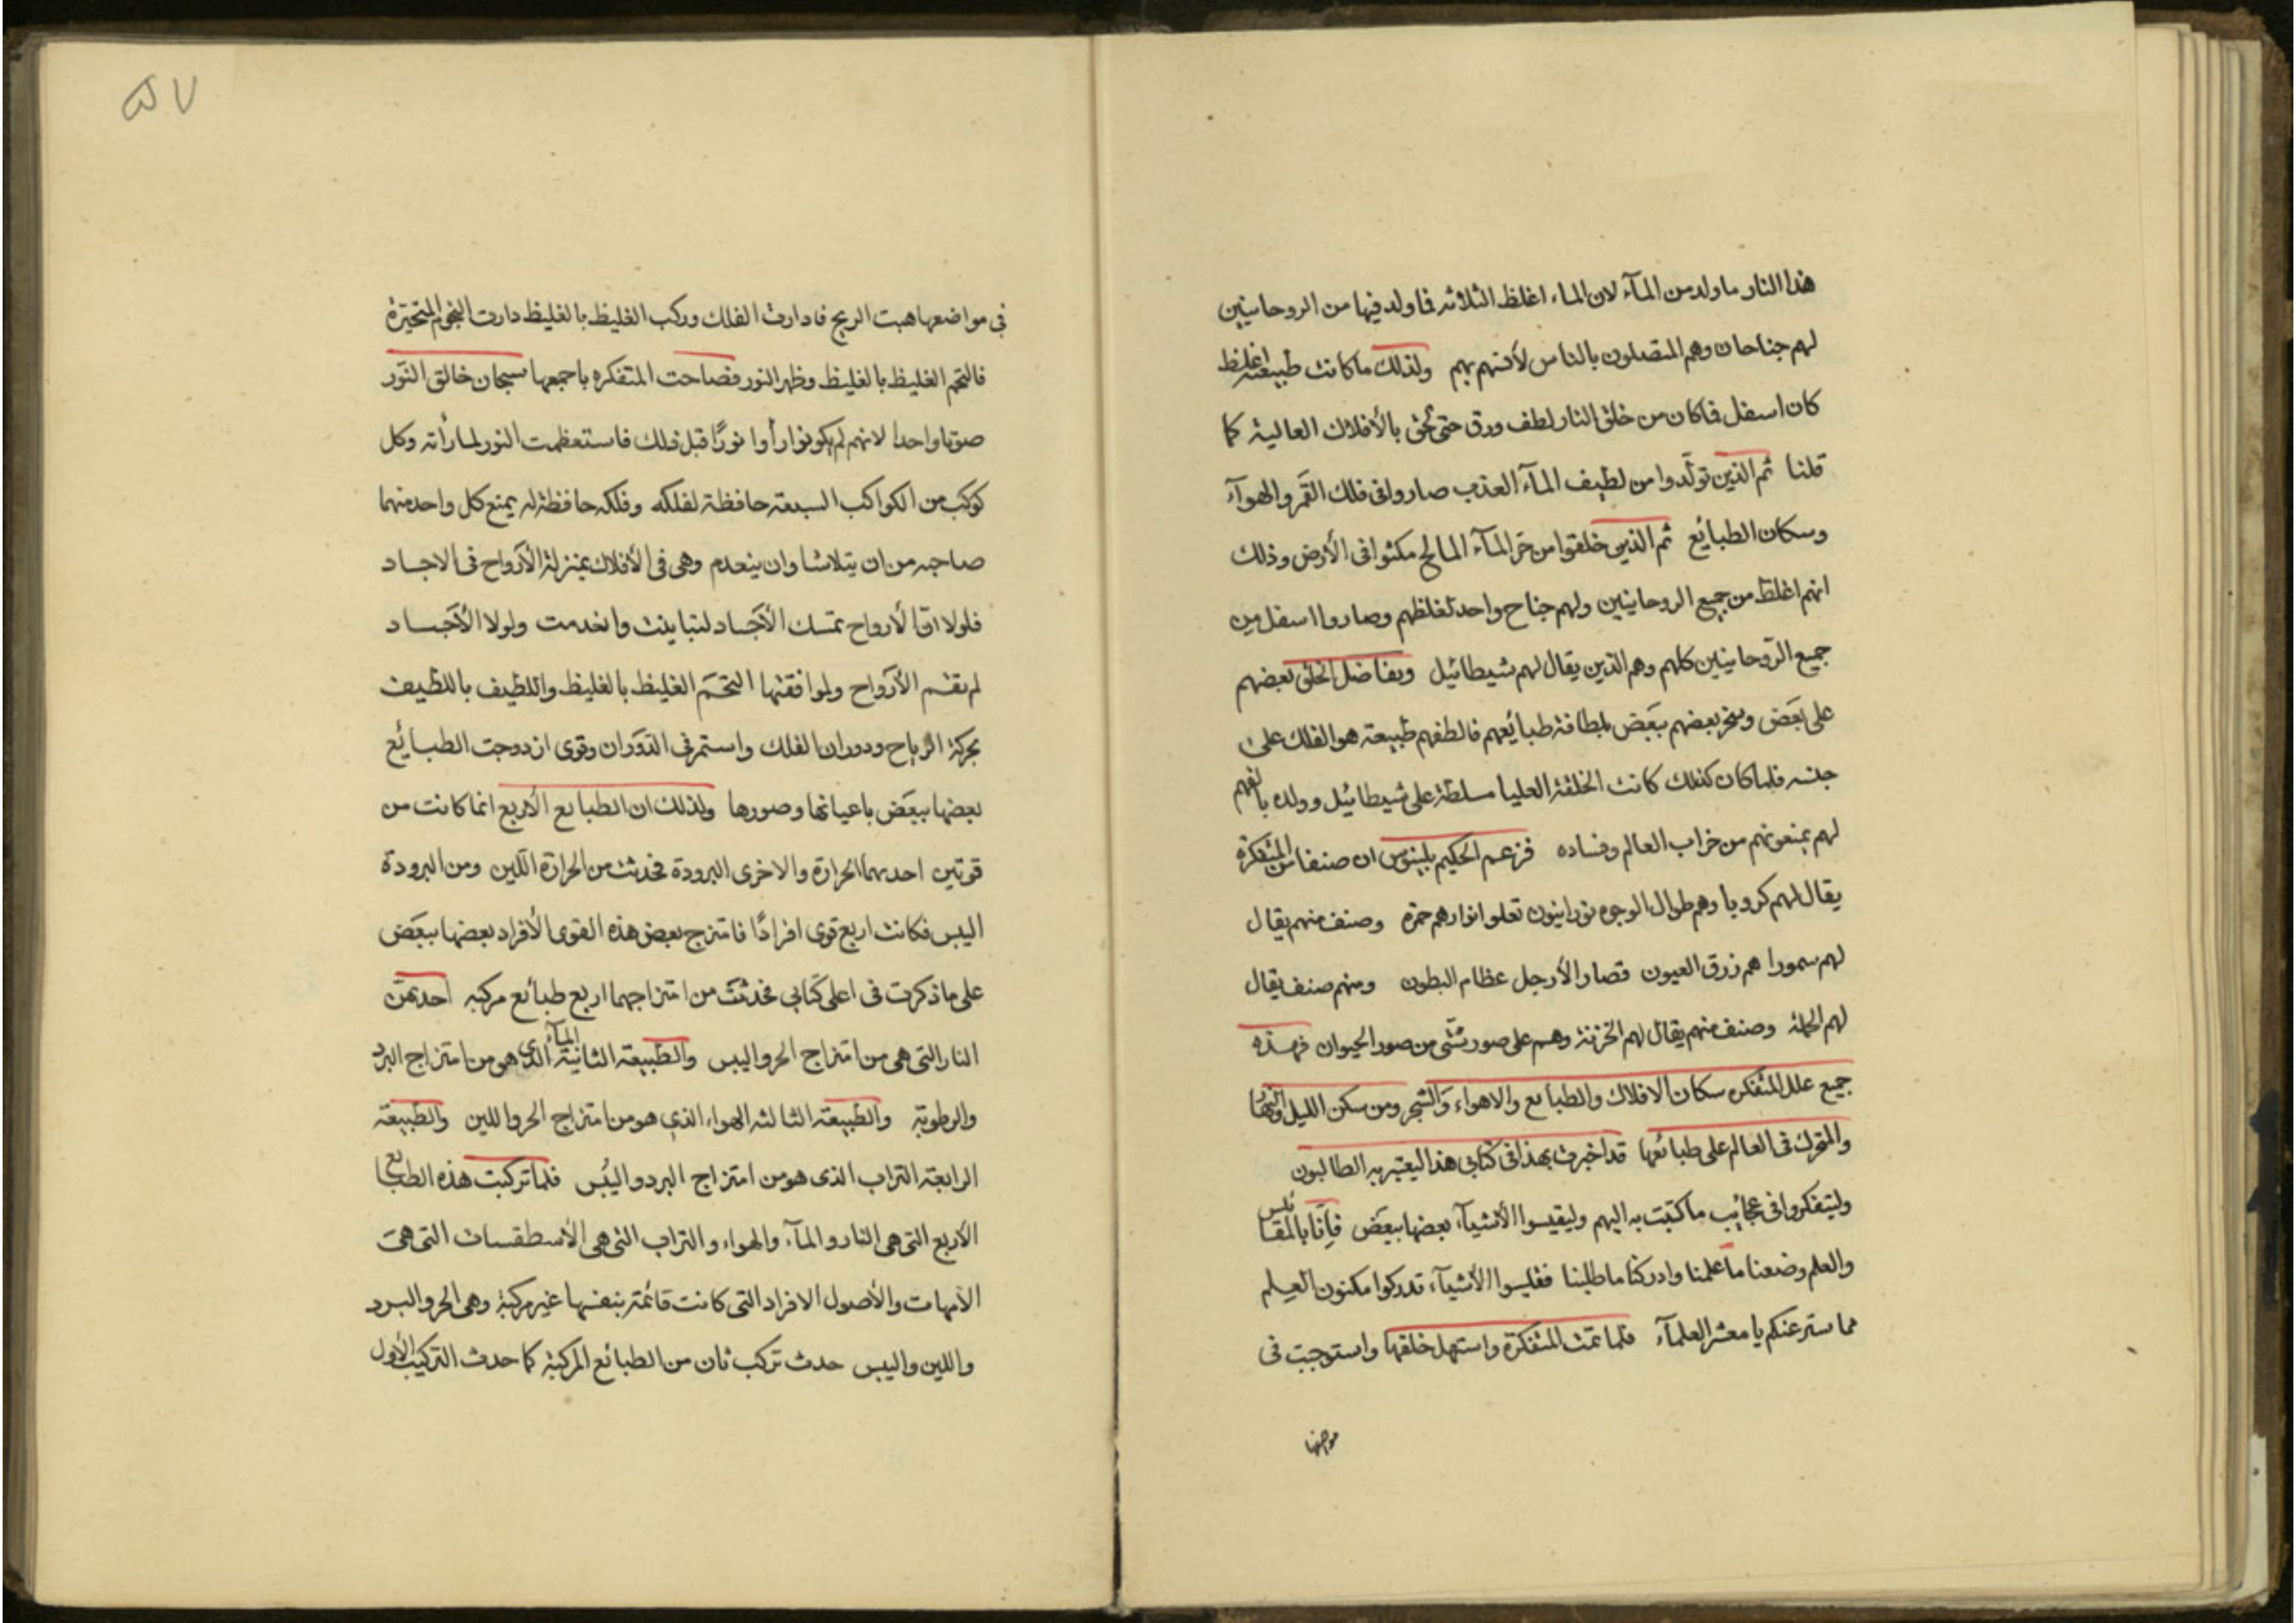 هذا النار ماولد من المآء لان الماء اغلظ الثلاثه فما ولد فيها من الروحانيين
لهم جناحان وهم المتصلون بالناس لأفتهم بهم ولذلك ماكانت طبيعته اغلظ
كان اسفل فما كان من خلق النار لطف ورق حتى لحق بالأفلاك العالية كما
قلنا ثم الذين تولّدوا من لطيف المآء العذب صاروا فى فلك القمر والهوآء
وسكان الطبائع ثم الذين خلقوا من حر المآء المالح مكثوا فى الأرض وذلك
انهم اغلظ من جميع الروحانيين ولهم جناح واحد لغلظهم وصاروا اسفل من
جميع الرّوحانيين كلهم وهم الذين يقال لهم شيطائيل وتفاضل الخلق بعضهم
على بعض وسخر بعضهم ببعض للطافة طبائعهم فالطفهم طبيعة هو الفلك على
جنسه فلما كان كذلك كانت الخلقة العليا مسلطة على شيطائيل وولده
لهم يمنعونهم من خراب العالم وفساده فزعم الحكيم بلينوس ان صنفا من المتفكرة
يقال لهم كروبيا وهم طوال الوجوه نورانيون تعلوا انوارهم حمرة وصنف منهم يقال
لهم سمورا هم زرق العيون قصار الأرجل عظام البطون ومنهم صنف يقال
لهم الحملة وصنف منهم يقال لهم الخزنة وهم على صور شتّى من صور الحيوان فهذه
جميع علل المتفكره سكان الافلاك والطبائع والاهواء والشجر ومن سكن الليل والنهار
والمتحرك فى العالم على طبائعها قد اخبرت بهذا فى كتابى هذا ليعتبر به الطالبون
وليتفكروا فى عجائب ما كتبت به اليهم وليقيسوا الأشيآء بعضها ببعض فإنّا بالمقائس
والعلم وضعنا ما علمنا وادركنا ما طلبنا فقليسوا الأشيآء تدركوا مكنون العلم
مما ستر عنكم يا معشر العلمآء فلما تمت المتفكرة واستهل خلقها واستوجبت فى
مواضعها
٥٧
فى مواضعها هبت الريح فادارت الفلك وركب الغليظ بالغليظ دارت النجوم المتحيّرة
فالتحم الغليظ بالغليظ وظهر النور فصاحت المتفكره باجمعها سبحان خالق النّور
صوتا واحدا لانهم لم يكونوا رأوا نورًا قبل ذلك فاستعظمت النور لما رأته وكل
كوكب من الكواكب السبعة حافظة لفلكه وفلكه حافظة له يمنع كل واحد منهما
صاحبه من ان يتلاشا وان ينعدم وهى فى الأفلاك بمنزلة الأرواح فى الاجساد
فلولا انّ الأرواح تمسك الأجساد لتباينت وانعدمت ولولا الأجساد
لم تقم الأرواح ولموافقتها التحم الغليظ بالغليظ واللطيف باللطيف
بحركة الرياح ودوران الفلك واستمر فى الدّوران وقوى ازدوجت الطبائع
بعضها ببعض باعيانها وصورها ولذلك ان الطبائع الأربع انما كانت من
قوتين احديهما الحرارة والاخرى البرودة فحدثت من الحرارة اللين ومن البرودة
اليبس فكانت اربع قوى افرادًا فامتزج بعض هذه القوى الأفراد بعضها ببعض
على ما ذكرت فى اعلى كتابى فحدثت من امتزاجهما اربع طبائع مركبه احدىهنّ
النار التى هى من امتزاج الحر واليبس والطبيعة الثانية المآء الذى هو من امتزاج البرد
والرطوبة والطبيعة الثالثه الهواء الذى هو من امتزاج الحر واللين والطبيعة
الرابعة التراب الذى هو من امتزاج البرد واليُبس فلما تركبت هذه الطبائع
الأربع التى هى النار والمآء والهواء والتراب التى هى الأسطقسات التى هى
الأمهات والأصول الافراد التى كانت قائمة بنفسها غير مركبة وهى الحر والبرد
واللين واليبس حدث تركب ثان من الطبائع المركبة كما حدث التركيب الأول